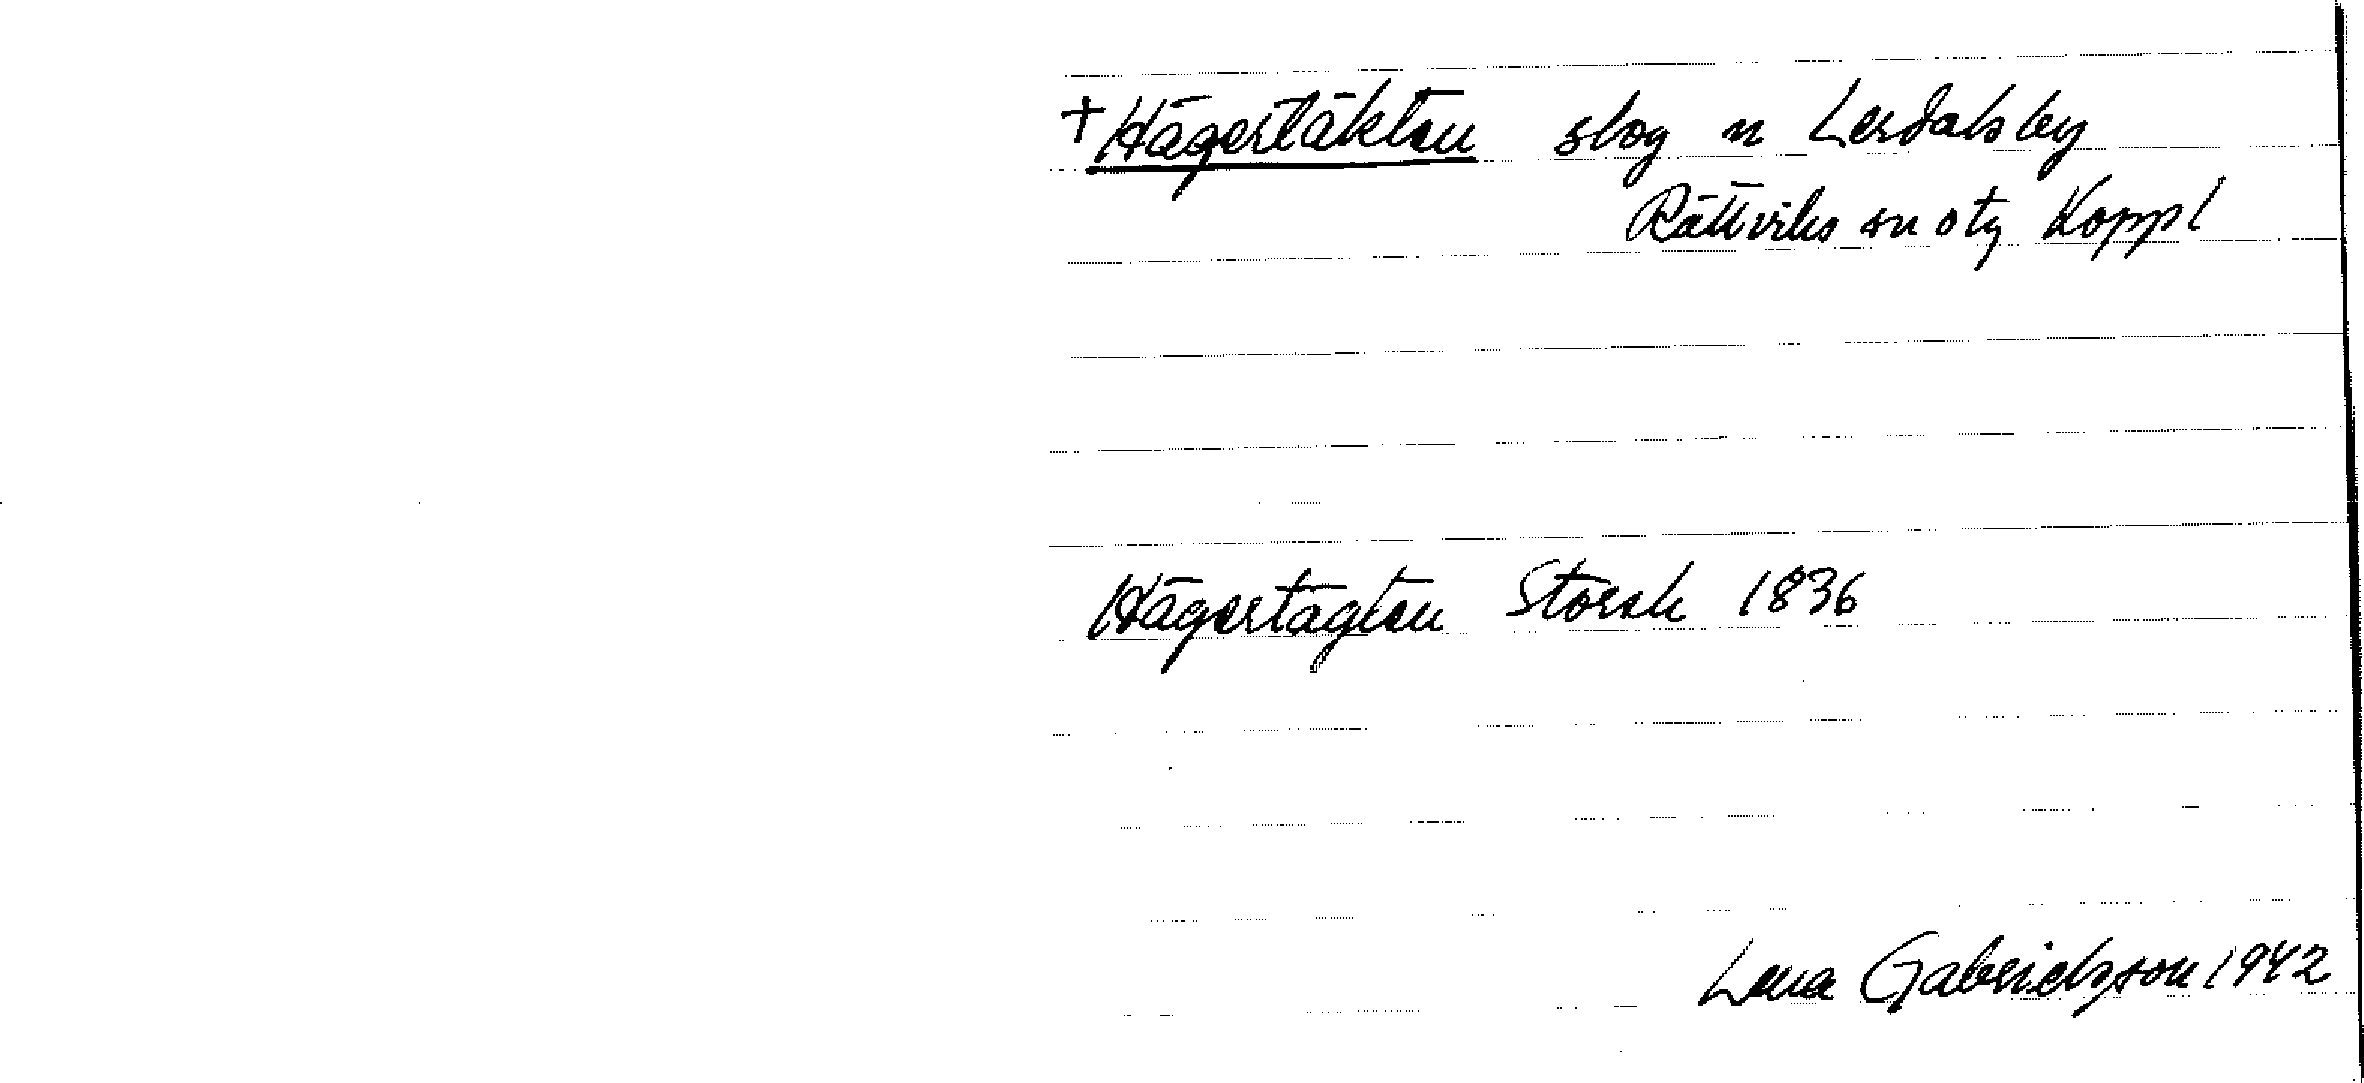 +Hägertäkten slog n Lerdalsby
Rättviks sn o tg Koppl
Hägertägten Storsk 1836
Lena Gabrielsson 1942